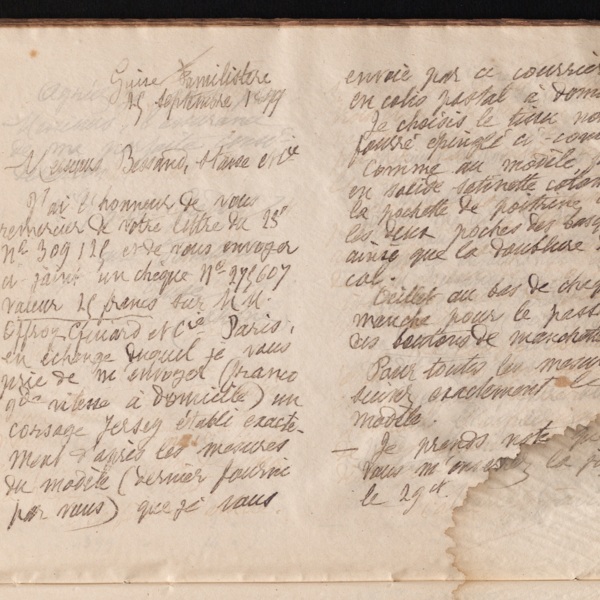 Guise Familistère
25 septembre 1899
Messieurs Bessand, Stasse et Cie
J'ai l'honneur de vous
remercier de votre lettre du 23
No 309128 et de vous envoyer
ci joint un chèque No
valeur 25 francs sur M.M.
Offroy Guiard et Cie Paris,
en échange duquel je vous
prie de m'envoyer (franco
gde vitesse à domicile) un
corsage Jersey établi exacte-
ment d'après les mesures
du modèle (dernier fourni
par vous) que je vous
envoie par ce courrier
en colis postal à
Je choisis le tissu
fourré épinglé
Comme au modèle,
en solide satinette
la pochette de poitrine
les deux poches des
ainsi que la doublure
col.
Oeillet au bas de
manche pour le
des boutons de
Pour toutes les
suivre exactement le
modèle.
- Je prends note
vous m'enverrez la
le 29 ct.